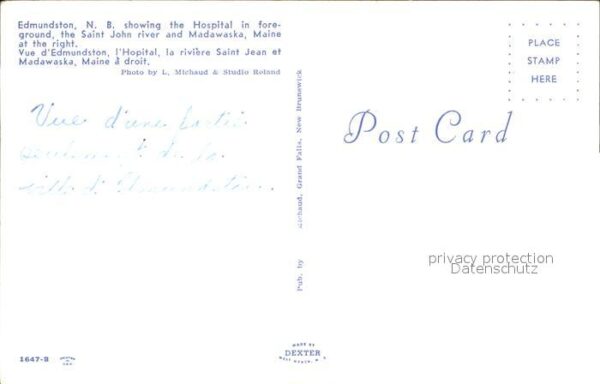 Edmundston, N. B. showing the Hospital in fore-
ground, the Saint John river and Madawaska, Maine
at the right.
Vue d'Edmundston, l'Hopital, la rivière Saint Jean et
Madawaska, Maine à droit.
Photo by L. Michaud & Studio Roland
PLACE
STAMP
HERE
Post Card
Vue d'une partie
seulement de la
ville d'Edmundston.
Pub. by Michaud, Grand Falls, New Brunswick
privacy protection
Datenschutz
1647-B
MADE BY
DEXTER